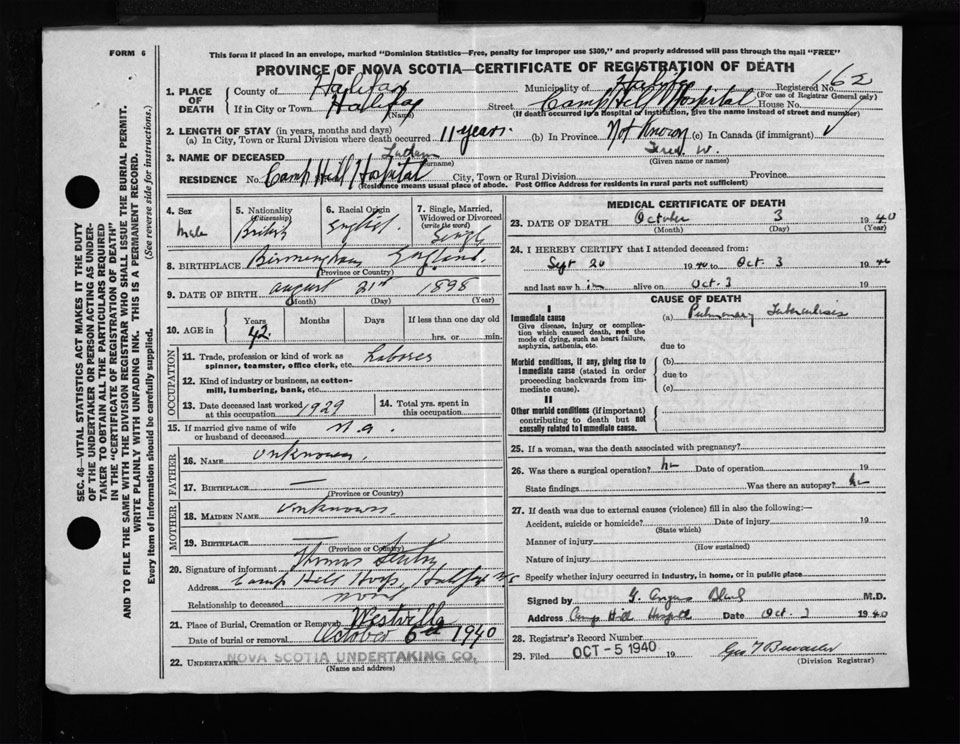 FORM 6
This form if placed in an envelope, marked "Dominion Statistics—Free, penalty for improper use $300," and properly addressed will pass through the mail "FREE"
PROVINCE OF NOVA SCOTIA—CERTIFICATE OF REGISTRATION OF DEATH
SEC. 46—VITAL STATISTICS ACT MAKES IT THE DUTY
OF THE UNDERTAKER OR PERSON ACTING AS UNDER-
TAKER TO OBTAIN ALL THE PARTICULARS REQUIRED
IN THE "CERTIFICATE OF REGISTRATION OF DEATH"
AND TO FILE THE SAME WITH THE DIVISION REGISTRAR WHO SHALL ISSUE THE BURIAL PERMIT.
WRITE PLAINLY WITH UNFADING INK. THIS IS A PERMANENT RECORD.
Every item of information should be carefully supplied. (See reverse side for instructions.)
1. PLACE OF DEATH
County of Halifax Municipality of Halifax Registered No. 162
(For use of Registrar General only)
If in City or Town Halifax Street Camp Hill Hospital House No.
(Name) (If death occurred in a Hospital or Institution, give the name instead of street and number)
2. LENGTH OF STAY (in years, months and days)
(a) In City, Town or Rural Division where death occurred 11 years. (b) In Province Not Known (c) In Canada (if immigrant)
3. NAME OF DECEASED W.
(Surname) (Given name or names)
RESIDENCE No. Camp Hill Hospital City, Town or Rural Division Province
(Residence means usual place of abode. Post Office Address for residents in rural parts not sufficient)
4. Sex Male
5. Nationality (Citizenship) British
6. Racial Origin English
7. Single, Married, Widowed or Divorced (write the word) Single
8. BIRTHPLACE Birmingham England.
(Province or Country)
9. DATE OF BIRTH August 21st 1898
(Month) (Day) (Year)
10. AGE in Years Months Days If less than one day old
42 hrs. or min.
OCCUPATION
11. Trade, profession or kind of work as spinner, teamster, office clerk, etc. Laborer
12. Kind of industry or business, as cotton-mill, lumbering, bank, etc.
13. Date deceased last worked at this occupation 1929
14. Total yrs. spent in this occupation
15. If married give name of wife or husband of deceased n.a.
FATHER
16. NAME Unknown.
17. BIRTHPLACE —
(Province or Country)
MOTHER
18. MAIDEN NAME Unknown.
19. BIRTHPLACE —
(Province or Country)
20. Signature of informant Thomas
Address Camp Hill Hosp, Halifax N.S
Relationship to deceased none
21. Place of Burial, Cremation or Removal Westville
Date of burial or removal October 6th 1940
22. UNDERTAKER NOVA SCOTIA UNDERTAKING CO.
(Name and address)
MEDICAL CERTIFICATE OF DEATH
23. DATE OF DEATH October 3 1940
(Month) (Day) (Year)
24. I HEREBY CERTIFY that I attended deceased from:
Sept 20 1940 to Oct. 3 1940
and last saw him alive on Oct. 3 19
CAUSE OF DEATH
I
Immediate cause (a) Pulmonary Tuberculosis
Give disease, injury or complication which caused death, not the mode of dying, such as heart failure, asphyxia, asthenia, etc.
due to
Morbid conditions, if any, giving rise to immediate cause (stated in order proceeding backwards from immediate cause).
(b)
due to
(c)
II
Other morbid conditions (if important) contributing to death but not causally related to immediate cause.
25. If a woman, was the death associated with pregnancy?
26. Was there a surgical operation? no Date of operation 19
State findings Was there an autopsy? no
27. If death was due to external causes (violence) fill in also the following:—
Accident, suicide or homicide? Date of injury 19
(State which)
Manner of injury
(How sustained)
Nature of injury
Specify whether injury occurred in industry, in home, or in public place
Signed by M.D.
Address Camp Hill Hospital Date Oct. 3 1940
28. Registrar's Record Number
29. Filed OCT - 5 1940 19
(Division Registrar)